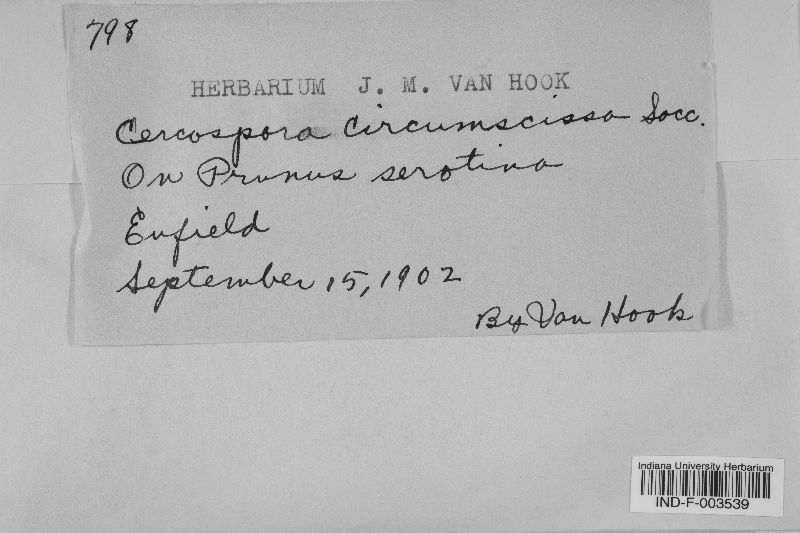 798
HERBARIUM J. M. VAN HOOK
Cercospora circumscissa Sacc.
On Prunus serotina
Enfield
September 15, 1902
By Van Hook
Indiana University Herbarium
IND-F-003539